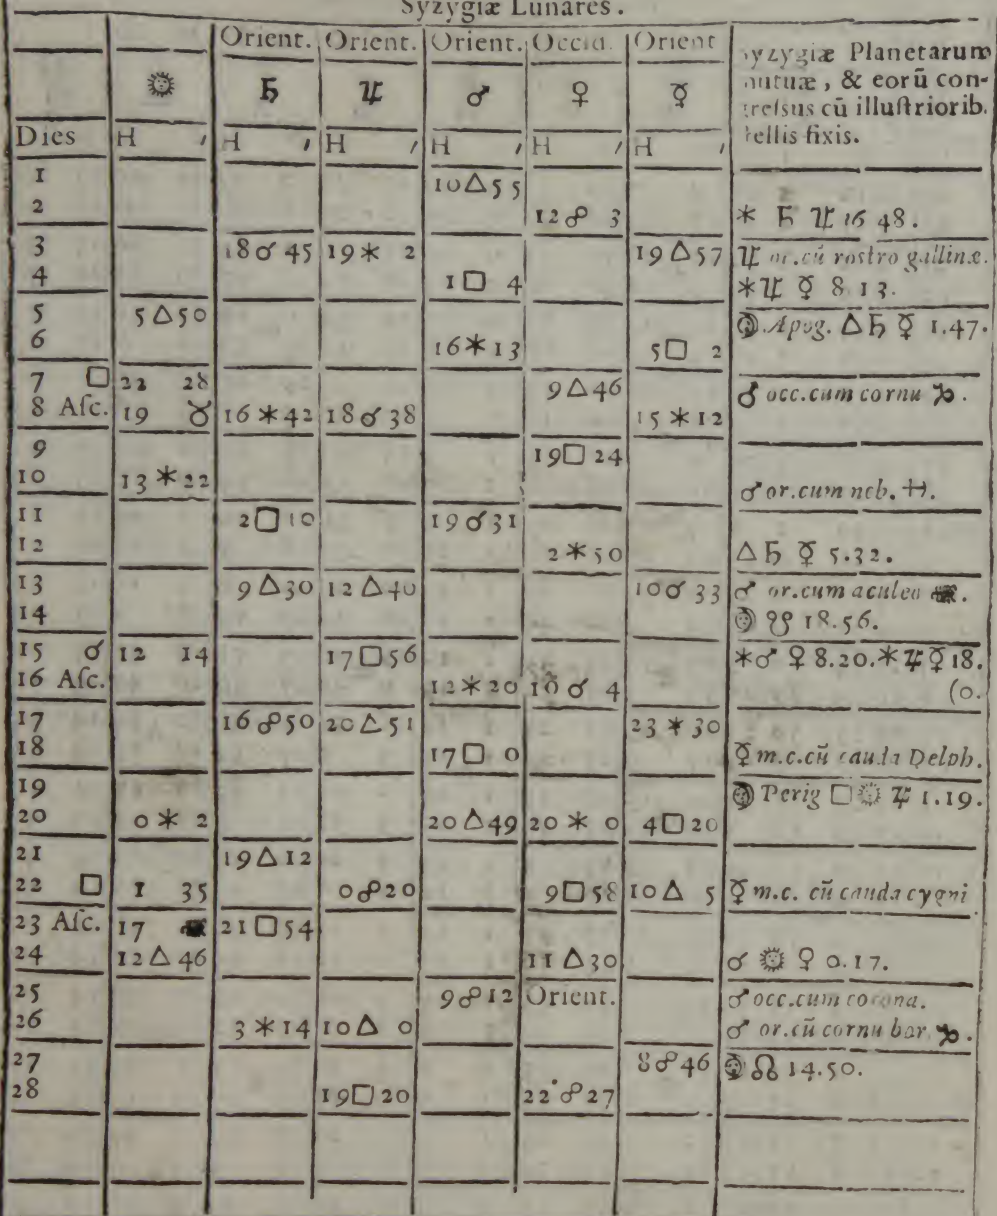 Syzygiæ Lunares.
Orient. Orient. Orient. Occid. Orient
☼ ♄ ♃ ♂ ♀ ☿
Syzygiæ Planetarum
mutuæ, & eorū con-
greſsus cū illuſtriorib.
ſtellis fixis.
Dies H ′ H ′ H ′ H ′ H ′ H ′
1 10△55
2 12☍ 3 ⚹ ♄ ♃ 16 48.
3 18☌45 19⚹ 2 19△57 ♃ or.cū rostro gallinæ.
4 1□ 4 ⚹♃ ☿ 8 13.
5 5△50 ☽.Apog. △♄☿ 1.47.
6 16⚹13 5□ 2
7 □ 22 28 9△46 ♂ occ.cum cornu ♑.
8 Aſc. 19 ♉ 16⚹42 18☌38 15⚹12
9 19□24
10 13⚹22 ♂ or.cum neb. ♐.
11 2□10 19☌31
12 2⚹50 △♄ ☿ 5.32.
13 9△30 12△40 10☌33 ♂ or.cum aculeo ♏.
14 ☽ ☋ 18.56.
15 ☌ 12 14 17□56 ⚹♂ ♀ 8.20.⚹♃☿18.
16 Aſc. 12⚹20 10☌ 4 (0.
17 16☍50 20△51 23⚹30
18 17□ 0 ☿m.c.cū cauda Delph.
19 ☽ Perig □☼ ♃ 1.19.
20 0⚹ 2 20△49 20⚹ 0 4□20
21 19△12
22 □ 1 35 0☍20 9□58 10△ 5 ☿m.c. cū cauda cygni
23 Aſc. 17 21□54
24 12△46 11△30 ☌ ☼ ♀ 0.17.
25 9☍12 Orient. ♂ occ.cum corona.
26 3⚹14 10△ 0 ♂ or.cū cornu bor. ♑.
27 8☍46 ☽☊ 14.50.
28 19□20 22☍27